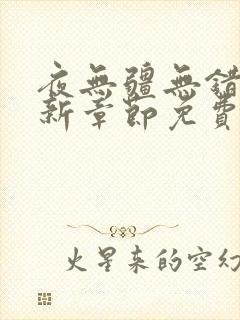 夜無疆無錯
新章節免費
火星來的空幻